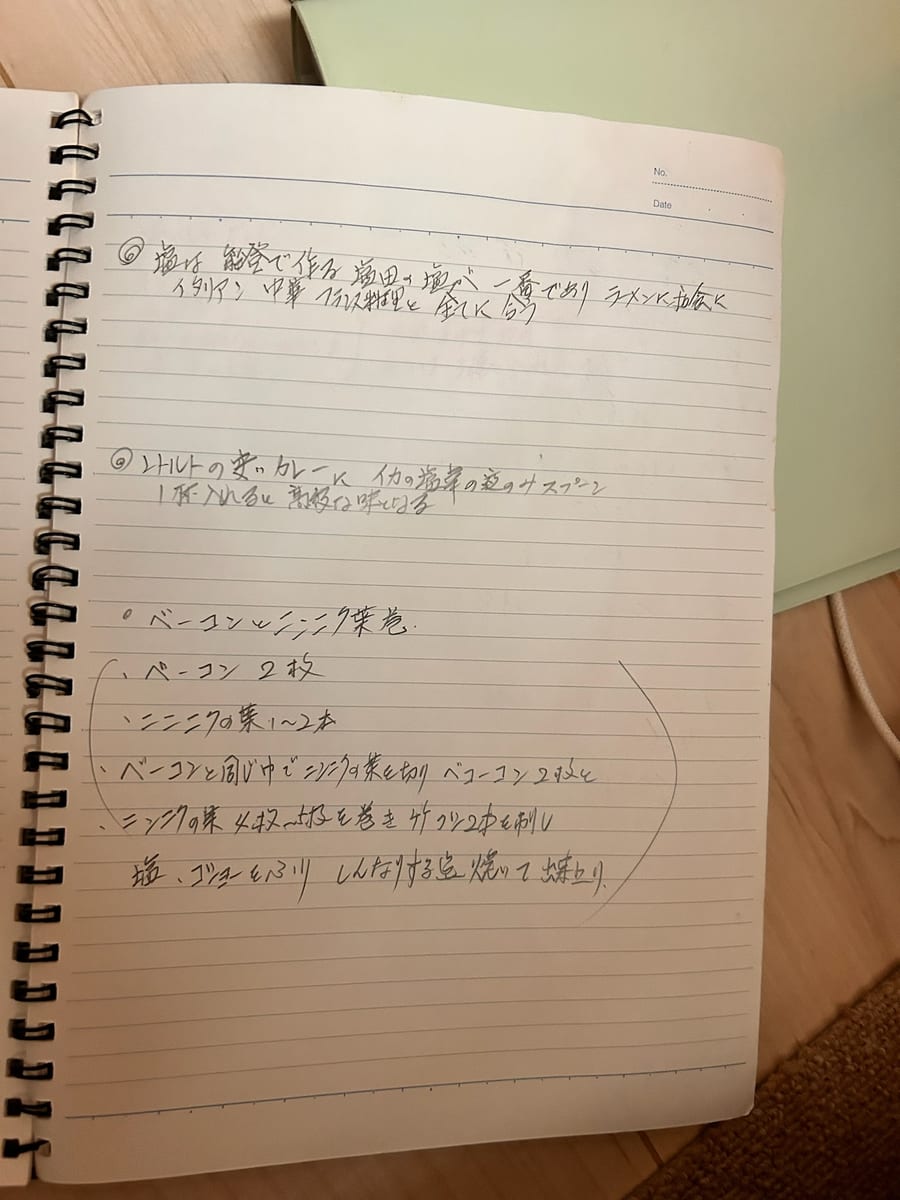 No.
Date
◎ 塩は 能登で作る 塩田の塩が 一番であり ラーメンに和食に
イタリアン 中華 フランス料理と 全てに合う
◎ レトルトの安いカレーに イカの塩辛の液のみスプーン
1杯入れると 高級な味になる
° ベーコンとニンニク葉巻
、ベーコン 2枚
、ニンニクの葉 1〜2本
、ベーコンと同じ巾でニンニクの葉を切り ベーコン2枚と
、ニンニクの葉 4枚〜5枚を巻き 竹グシ2本を刺し
塩、コショーをふり しんなりする迄 焼いて 出来上り.